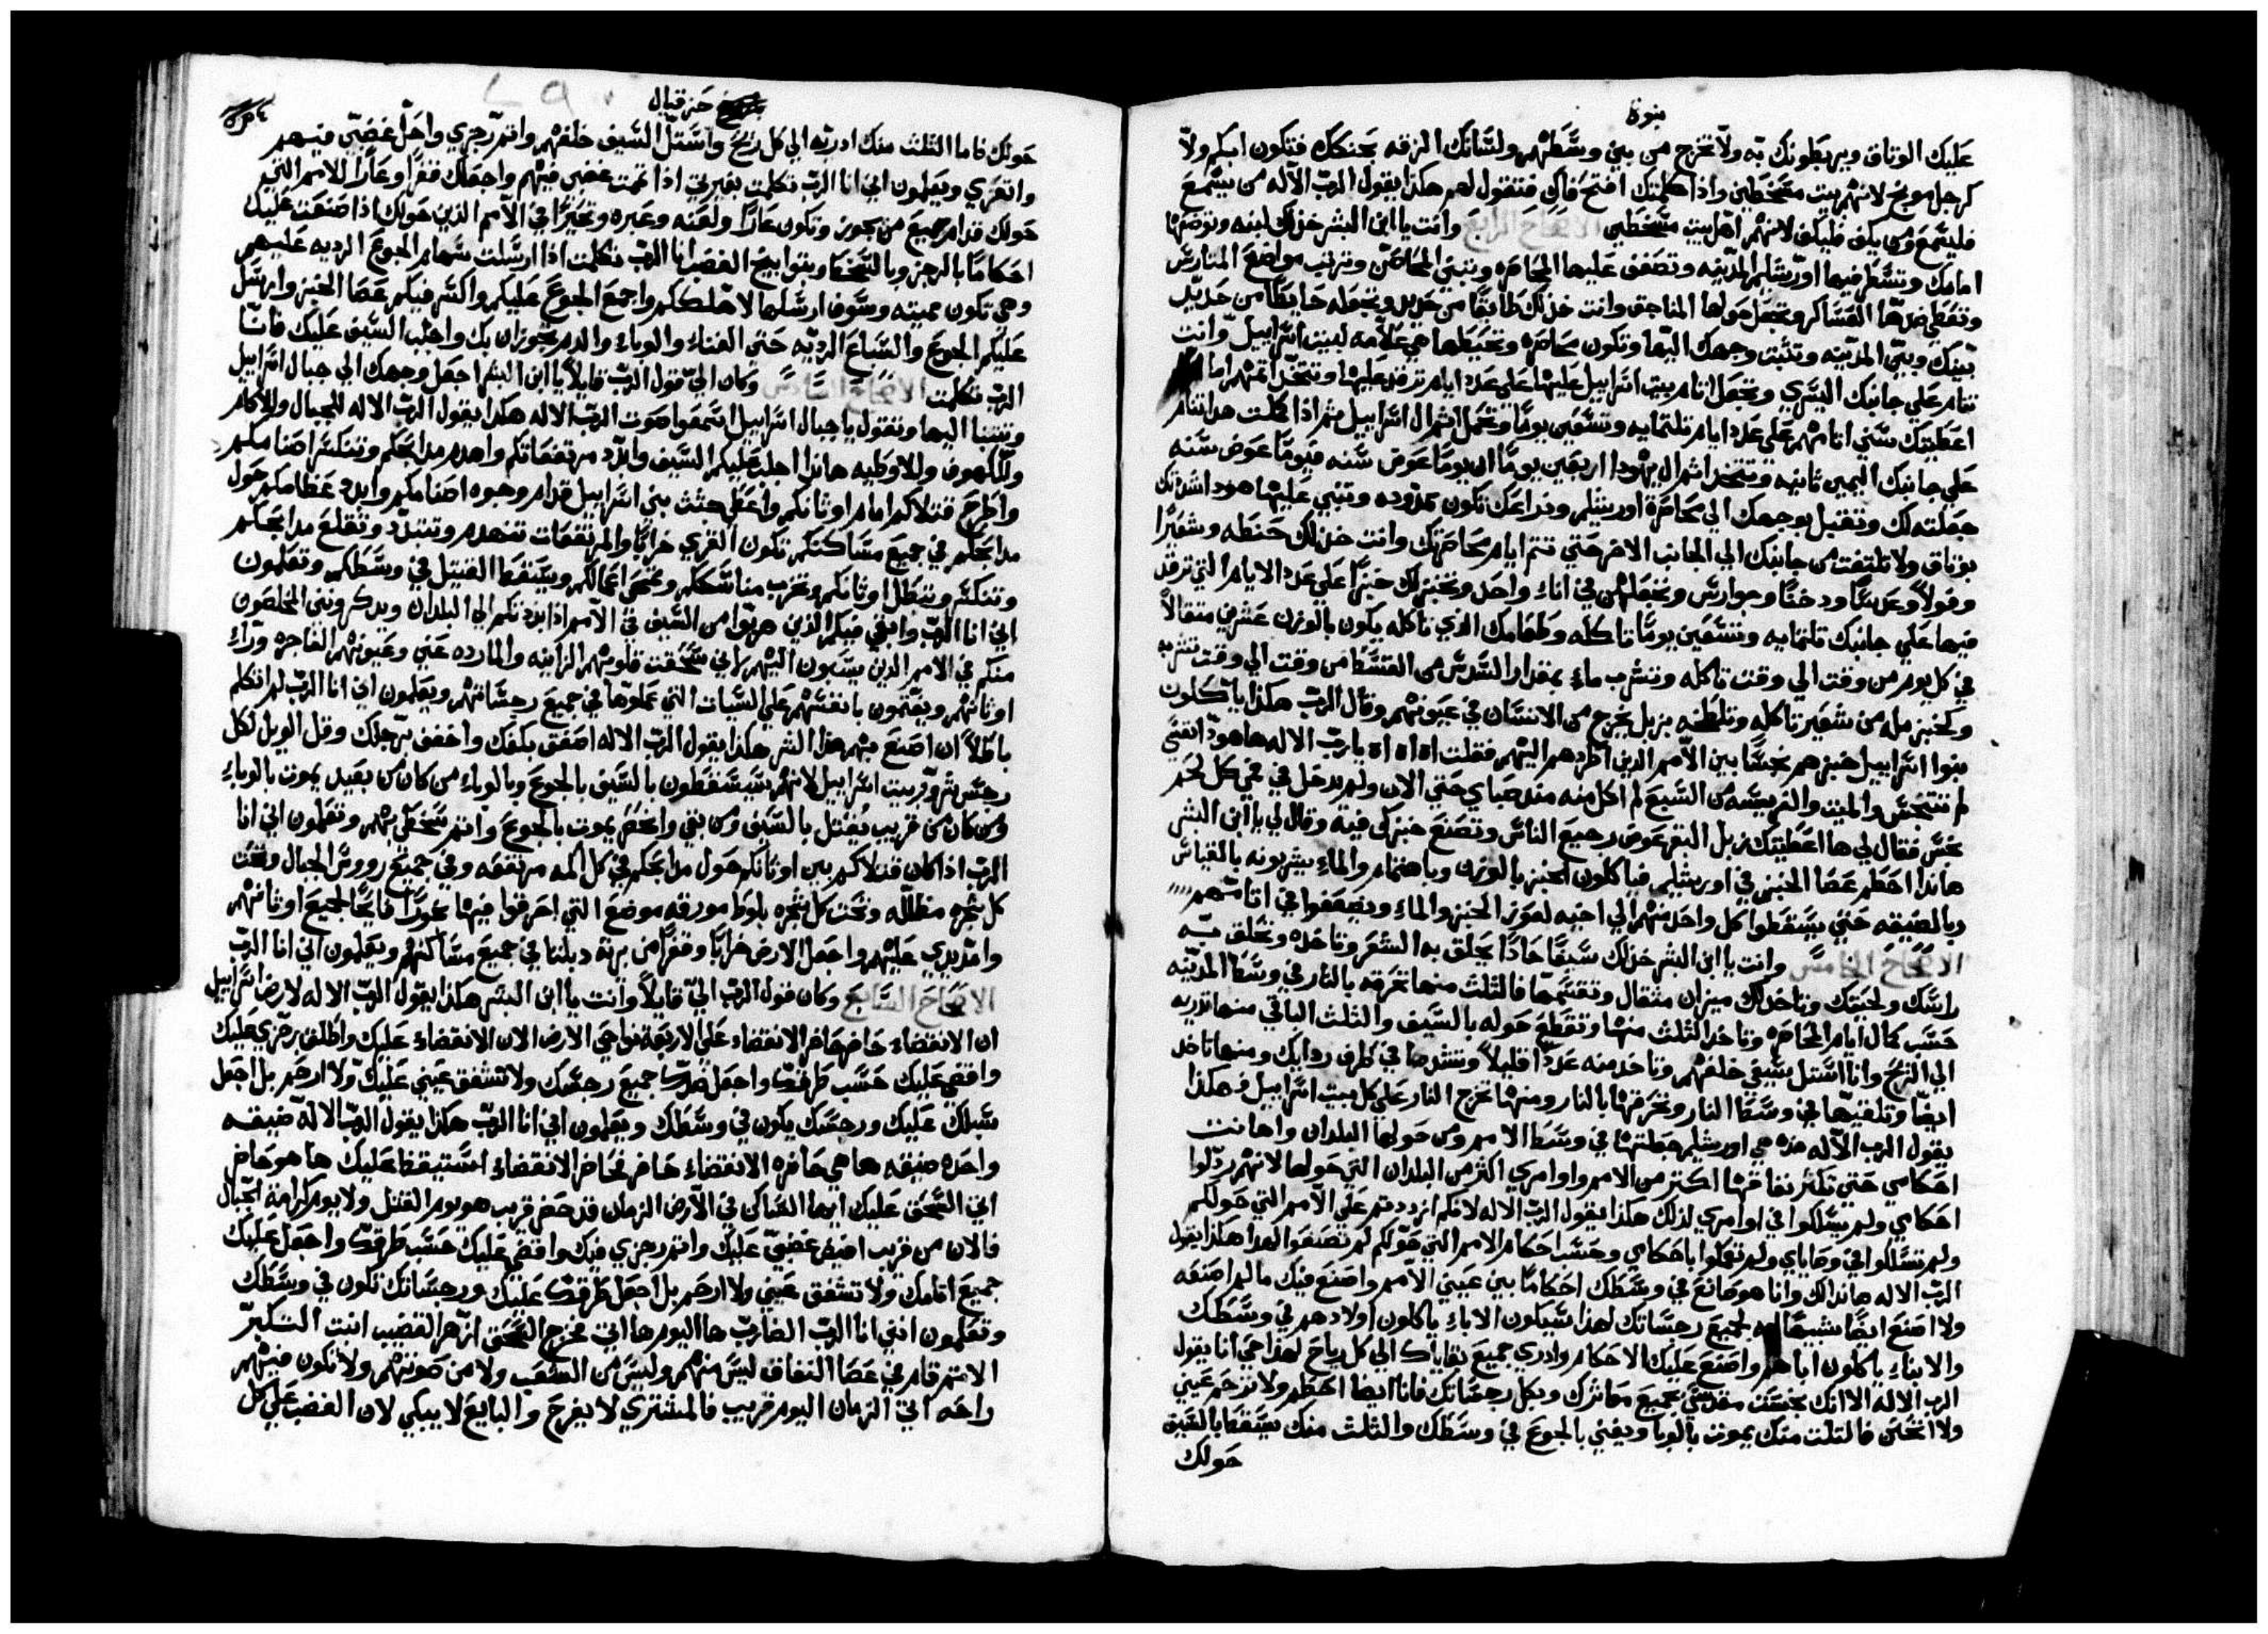 نبوة
عليك الوثاق ويربطونك به ولا تخرج من بين وسطهم ولسانك الزقه بحنكك فتكون ابكم ولا
كرجل موبخ لانهم بيت متسخطين واذا كلمتك افتح فاك فتقول لهم هكذا يقول الرب الاله من يسمع
فليسمع ومن يكف فليكف لانهم اهل بيت متسخطين الاصحاح الرابع وانت يا ابن البشر خذ لك لبنه وتوضعها
امامك وتسطر فيها اورشليم المدينه وتصفن عليها المحاصره وتبني المحاصن وترتب مواضع المتارس
وتعطي ضدها العساكر وتجعل حولها المناجق وانت خذ لك طابقا من حديد وتجعله حايطا من حديد
بينك وبين المدينه وتثبت وجهك اليها وتكون محاصره وتحيطها هي علامه لبيت اسراييل وانت
تنام علي جانبك اليسري وتجعل اثام بيت اسراييل عليها علي عدد ايام ترقد عليها وتتخذ اثمهم اما انا
اعطيتك سني اثامهم علي عدد ايام تلتمايه وتسعين يوما وتحمل اثم ال اسراييل ثم اذا كملت هذا تنام
علي جانبك اليمين ثانيه وتتخذ اثم ال يهودا اربعين يوما ان يوما عوض سنه فيوما عوض سنه
جعلته لك وتقبل بوجهك الي محاصرة اورشليم وذراعك تكون ممدوده وتتنبي عليها هودا اشدتك
بوثاق ولا تلتفت من جانبك الي الجانب الاخر حتي تتم ايام محاصرتك وانت خذ لك حنطه وشعيرا
وفولا وعدسا ودخنا وجوارس وتجعلهن في اناء واحد وتخبز لك خبزا علي عدد الايام التي ترقد
فيها علي جانبك تلتمايه وتسعين يوما تاكله وطعامك الذي تاكله يكون بالوزن عشرين مثقالا
في كل يوم من وقت الي وقت تاكله وتشرب ماء بمقدار السدس من القسط من وقت الي وقت تشربه
وكخبز مله من شعير تاكله وتلطخه بزبل يخرج من الانسان في عيونهم وقال الرب هكذا ياكلون
بنوا اسراييل خبزهم نجسا بين الامم الذين اطردهم اليهم فقلت اه اه اه يا رب الاله ها هوذا نفسي
لم تتنجس والميت والفريسه من السبع لم اكل منه منذ صباي حتي الان ولم يدخل في فمي كل لحم
نجس فقال لي ها اعطيتك زبل البقر عوض رجيع الناس وتصنع خبزك فيه وقال لي يا ابن البشر
هانذا احطم عصا الخبز في اورشليم فياكلون الخبز بالوزن وباهتمام والماء يشربونه بالقياس
وبالضيقه حتي يسقطوا كل واحد منهم الي اخيه لعوز الخبز والماء ويضعفوا في اثامهم
الاصحاح الخامس وانت يا ابن البشر خذ لك سيفا حادا يحلق به الشعر وتاخذه وتحلق به
راسك ولحيتك وتاخذ لك ميزان مثقال وتقسمها فالثلث منها تحرقه بالنار في وسط المدينه
حسب كمال ايام المحاصره وتاخذ الثلث منها وتقطع حوله بالسيف والثلث الباقي منها تذريه
الي الريح وانا استل سيفي خلفهم وتاخذ منه عددا قليلا وتشدها في طرف ردايك ومنها تاخذ
ايضا وتلقيها في وسط النار وتحرقها بالنار ومنها تخرج النار علي كل بيت اسراييل فهكذا
يقول الرب الاله هذه هي اورشليم جعلتها في وسط الامم ومن حولها البلدان واهانت
احكامي حتي تكثر نفاقها اكثر من الامم واوامري اكثر من البلدان التي حولها لانهم رذلوا
احكامي ولم يسلكوا في اوامري لذلك هكذا يقول الرب الاله لانكم ازددتم علي الامم التي حولكم
ولم تسلكوا في وصاياي ولم تعملوا باحكامي وحسب احكام الامم التي حولكم لم تصنعوا لهذا هكذا يقول
الرب الاله هانذا لك وانا هو صانع في وسطك احكاما بين عيني الامم واصنع فيك ما لم اصنعه
ولا اصنع ايضا شبيها لجميع رجساتك لهذا سيكون الاباء ياكلون اولادهم في وسطك
والابناء ياكلون اباهم واصنع عليك الاحكام واذري جميع بقاياك الي كل رياح لهذا حي انا يقول
الرب الاله الا انك نجست مقدسي بجميع معاثرك وبكل رجساتك فانا ايضا احطم ولا تزحم عيني
ولا اتحنن فالثلث منك يموت بالوبا ويفني بالجوع في وسطك والثلث منك يسقط بالسيف
حولك
حزقيال
حولك فاما الثلث منك اذريه الي كل ريح واستل السيف خلفهم واتم رجزي واحل غضبي فيهم
واتعزي ويعلمون اني انا الرب تكلمت بغيرتي اذا تمت غضبي فيهم واجعلك قفرا وعارا للامم التي
حولك قدام جميع من يجوز وتكون عارا ولعنه وعبره وتحيرا في الامم الذين حولك اذا صنعت عليك
احكاما بالرجز وبالسخط وبتوابيخ الغضب انا الرب تكلمت اذا ارسلت سهام الجوع الرديه عليهم
وهي تكون مميته وسوف ارسلها لاهلككم واجمع الجوع عليكم واكسر فيكم عصا الخبز وارسل
عليكم الجوع والسباع الرديه حتي الفناء والوباء والدم يجوزان بك واجلب السيف عليك فانا
الرب تكلمت الاصحاح السادس وكان الي قول الرب قايلا يا ابن البشر اجعل وجهك الي جبال اسراييل
وتتنبا اليها وتقول يا جبال اسراييل اسمعوا صوت الرب الاله هكذا يقول الرب الاله للجبال وللاكام
وللكهوف وللاوطيه هانذا اجلب عليكم السيف وابدد مرتفعاتكم واهدم مذابحكم وتنكسر اصنامكم
واطرح قتلاكم امام اوثانكم واعطي جثث بني اسراييل قدام وجوه اصنامكم وابدد عظامكم حول
مذابحكم في جميع مساكنكم تكون القري خرابا والمرتفعات تنهدم وتتبدد وتقلع مذابحكم
وتنكسر وتبطل اوثانكم وتخرب مناسككم وتمحي اعمالكم ويسقط القتيل في وسطكم وتعلمون
اني انا الرب وابقي فيكم الذين هربوا من السيف في الامم اذا بددتكم الي البلدان ويذكرونني المخلصون
منكم في الامم الذين يسبون اليهم لاني سحقت قلوبهم الزانيه والمارده عني وعيونهم الفاجره وراء
اوثانهم ويغتمون بانفسهم علي السيات التي عملوها في جميع رجساتهم ويعلمون اني انا الرب لم اتكلم
باطلا ان اصنع بهم هذا الشر هكذا يقول الرب الاله اصفق بكفك واخفق برجلك وقل الويل لكل
رجس شرور بيت اسراييل لانهم سيسقطون بالسيف بالجوع وبالوباء من كان من بعيد يموت بالوباء
ومن كان من قريب يقتل بالسيف ومن بقي وانحصر يموت بالجوع واتم سخطي بهم وتعلمون اني انا
الرب اذا كان قتلاكم بين اوثانكم حول مذابحكم في كل اكمه مرتفعه وفي جميع رووس الجبال وتحت
كل شجره مظلله وتحت كل شجره بلوط مورقه موضع التي احرقوا فيها بخورا فايحا لجميع اوثانهم
وامد يدي عليهم واجعل الارض خرابا وقفرا من برية دبلتا في جميع مساكنهم ويعلمون اني انا الرب
الاصحاح السابع وكان قول الرب الي قايلا وانت يا ابن البشر هكذا يقول الرب الاله لارض اسراييل
ان الانقضاء حاضر حاضر الانقضاء علي الاربعة نواحي الارض الان الانقضاء عليك واطلق رجزي عليك
واقضي عليك حسب طرقك واجعل ضدك جميع رجسك ولا تشفق عيني عليك ولا ارحم بل اجعل
سبلك عليك ورجسك يكون في وسطك ويعلمون اني انا الرب هكذا يقول الرب الاله ضيقه
واحده ضيقه ها هي حاضره الانقضاء حاضر حاضر الانقضاء استيقظ عليك ها هو حاضر
اتي السحق عليك ايها الساكن في الارض الزمان قد حضر قريب هو يوم القتل ولا يوم كرامة الجبال
فالان من قريب افيض غضبي عليك واتم رجزي فيك واقضي عليك حسب طرقك واجعل عليك
جميع اثامك ولا تشفق عيني ولا ارحم بل اجعل طرقك عليك ورجساتك تكون في وسطك
وتعلمون انني انا الرب الضارب ها اليوم ها اتي مخرج السحق ازهر القضيب انبت التكبر
الاثم قام في عصا النفاق ليس منهم وليس من الشعب ولا من صوتهم ولا تكون فيهم
راحه اتي الزمان اليوم قريب فالمشتري لا يفرح والبايع لا يبكي لان الغضب علي كل